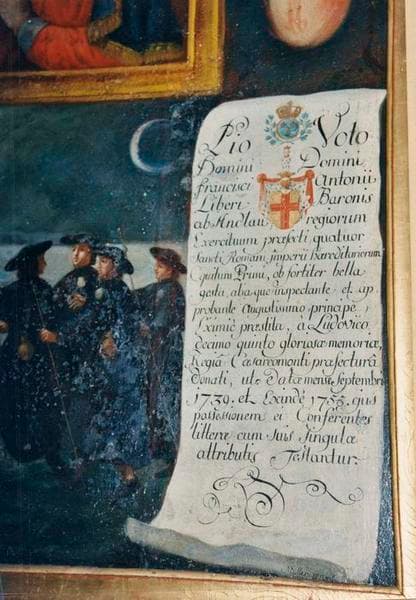 Pio Voto
Domini Domini
francisci Antonii
Liberi Baronis
ab Andlau regiorum
Exercituum præfecti quatuor
Sancti Romani imperii hæreditariorum
Equitum Primi, ob fortiter bella
gesta, abs que inspectante et ap
probante Augustissimo principe
Eximie præstita, a Ludovico
Decimo quinto gloriosæ memoriæ,
Regiâ Cæsaremonti præfecturâ
Donati, ut Data mense Septembri
1739. et Exinde 1755. ejus
possessionem ei Conferentes
litteræ cum Suis Singulæ
attributis Testantur.